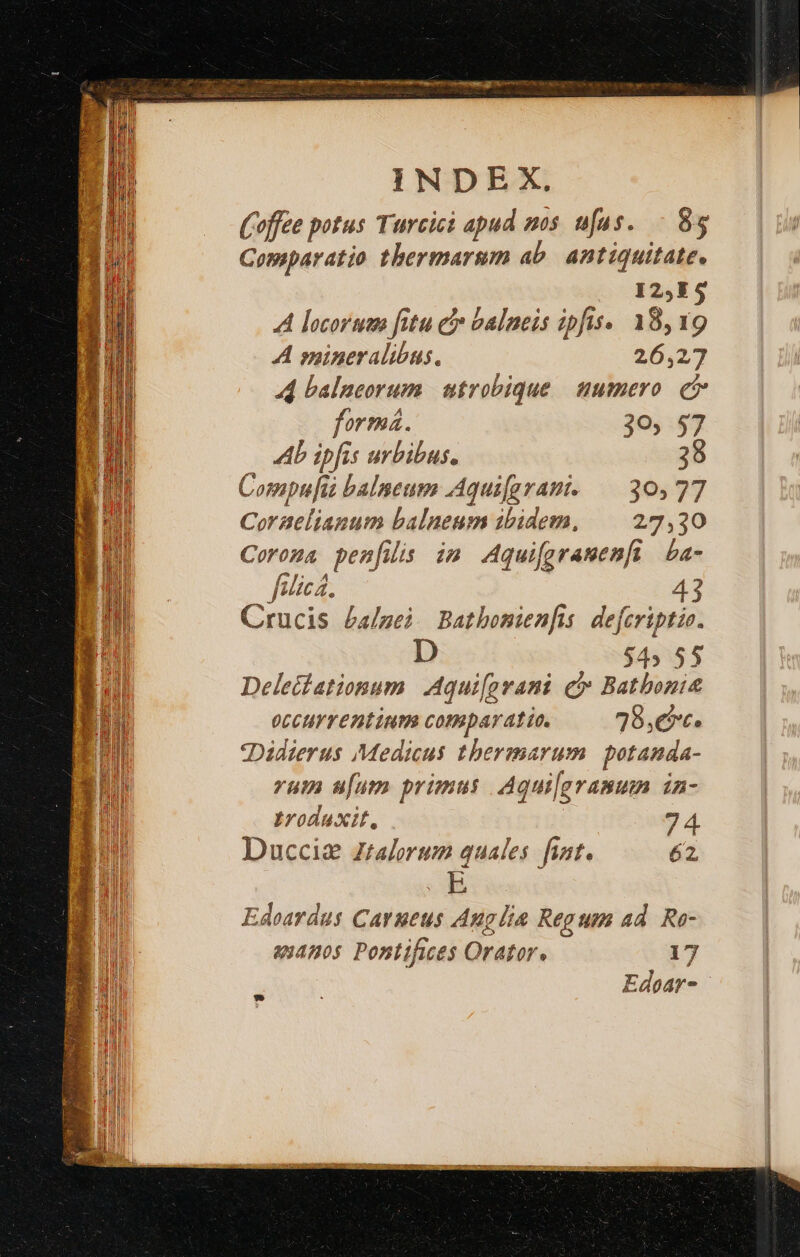 INDEX.
Coffee potus Turcici apud nos uſus. 85
Comparatio thermarum ab antiquitate.
12,15
A locorum ſitu & balneis ipſis. 18,19
A mineralibus. 26,27
A balneorum utrobique numero &
formâ. 39, 57
Ab ipſis urbibus. 38
Compuſii balneum Aquiſgrani. 30,77
Cornelianum balneum ibidem, 27,30
Corona penſilis in Aquiſgranenſi ba-
ſilicâ. 43
Crucis balnei Bathonienſis deſcriptio.
D 54, 55
Delectationum Aquiſgrani & Bathoniæ
occurrentium comparatio. 78,&c.
Didierus Medicus thermarum potanda-
rum uſum primus Aquiſgranum in-
troduxit. 74
Ducciæ Italorum quales ſint. 62
E
Edoardus Carneus Angliæ Regum ad Ro-
manos Pontifices Orator. 17
Edoar-